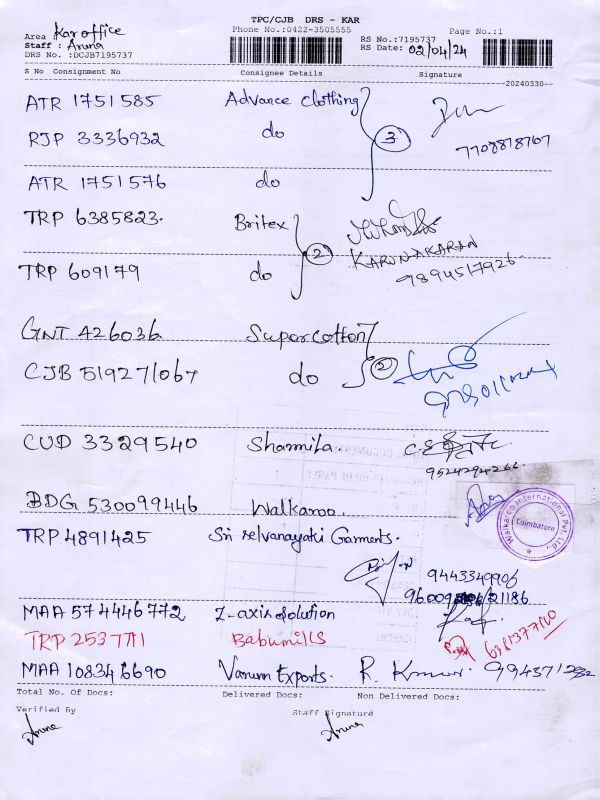 TPC/CJB DRS - KAR
Area : Kar office Phone No.:0422-3505555 RS No.:7195737 Page No.:1
Staff : Aruna RS Date: 02/04/24
DRS No. :DCJB7195737
S No Consignment No Consignee Details Signature
20240330
ATR 1751585 Advance clothing
RJP 3336932 do 3
7708878767
ATR 1751576 do
TRP 6385823. Britex
KARUNAKARAN
TRP 609179 do 2 9894517926
GNT 426036 Supercotton
CJB 519271067 do 2
CUD 3329540 Sharmila
9524294266
BDG 530099446 Walkaroo
Walkaroo International Pvt. Ltd., Coimbatore
TRP 4891425 Sri selvanayaki Garments.
9443349906
MAA 574446772 Z-axis solution
TRP 2537711 Babumills
MAA 108346690 Varun Exports. R. Kumar
Total No. Of Docs: Delivered Docs: Non Delivered Docs:
Verified By Staff Signature
Aruna Aruna